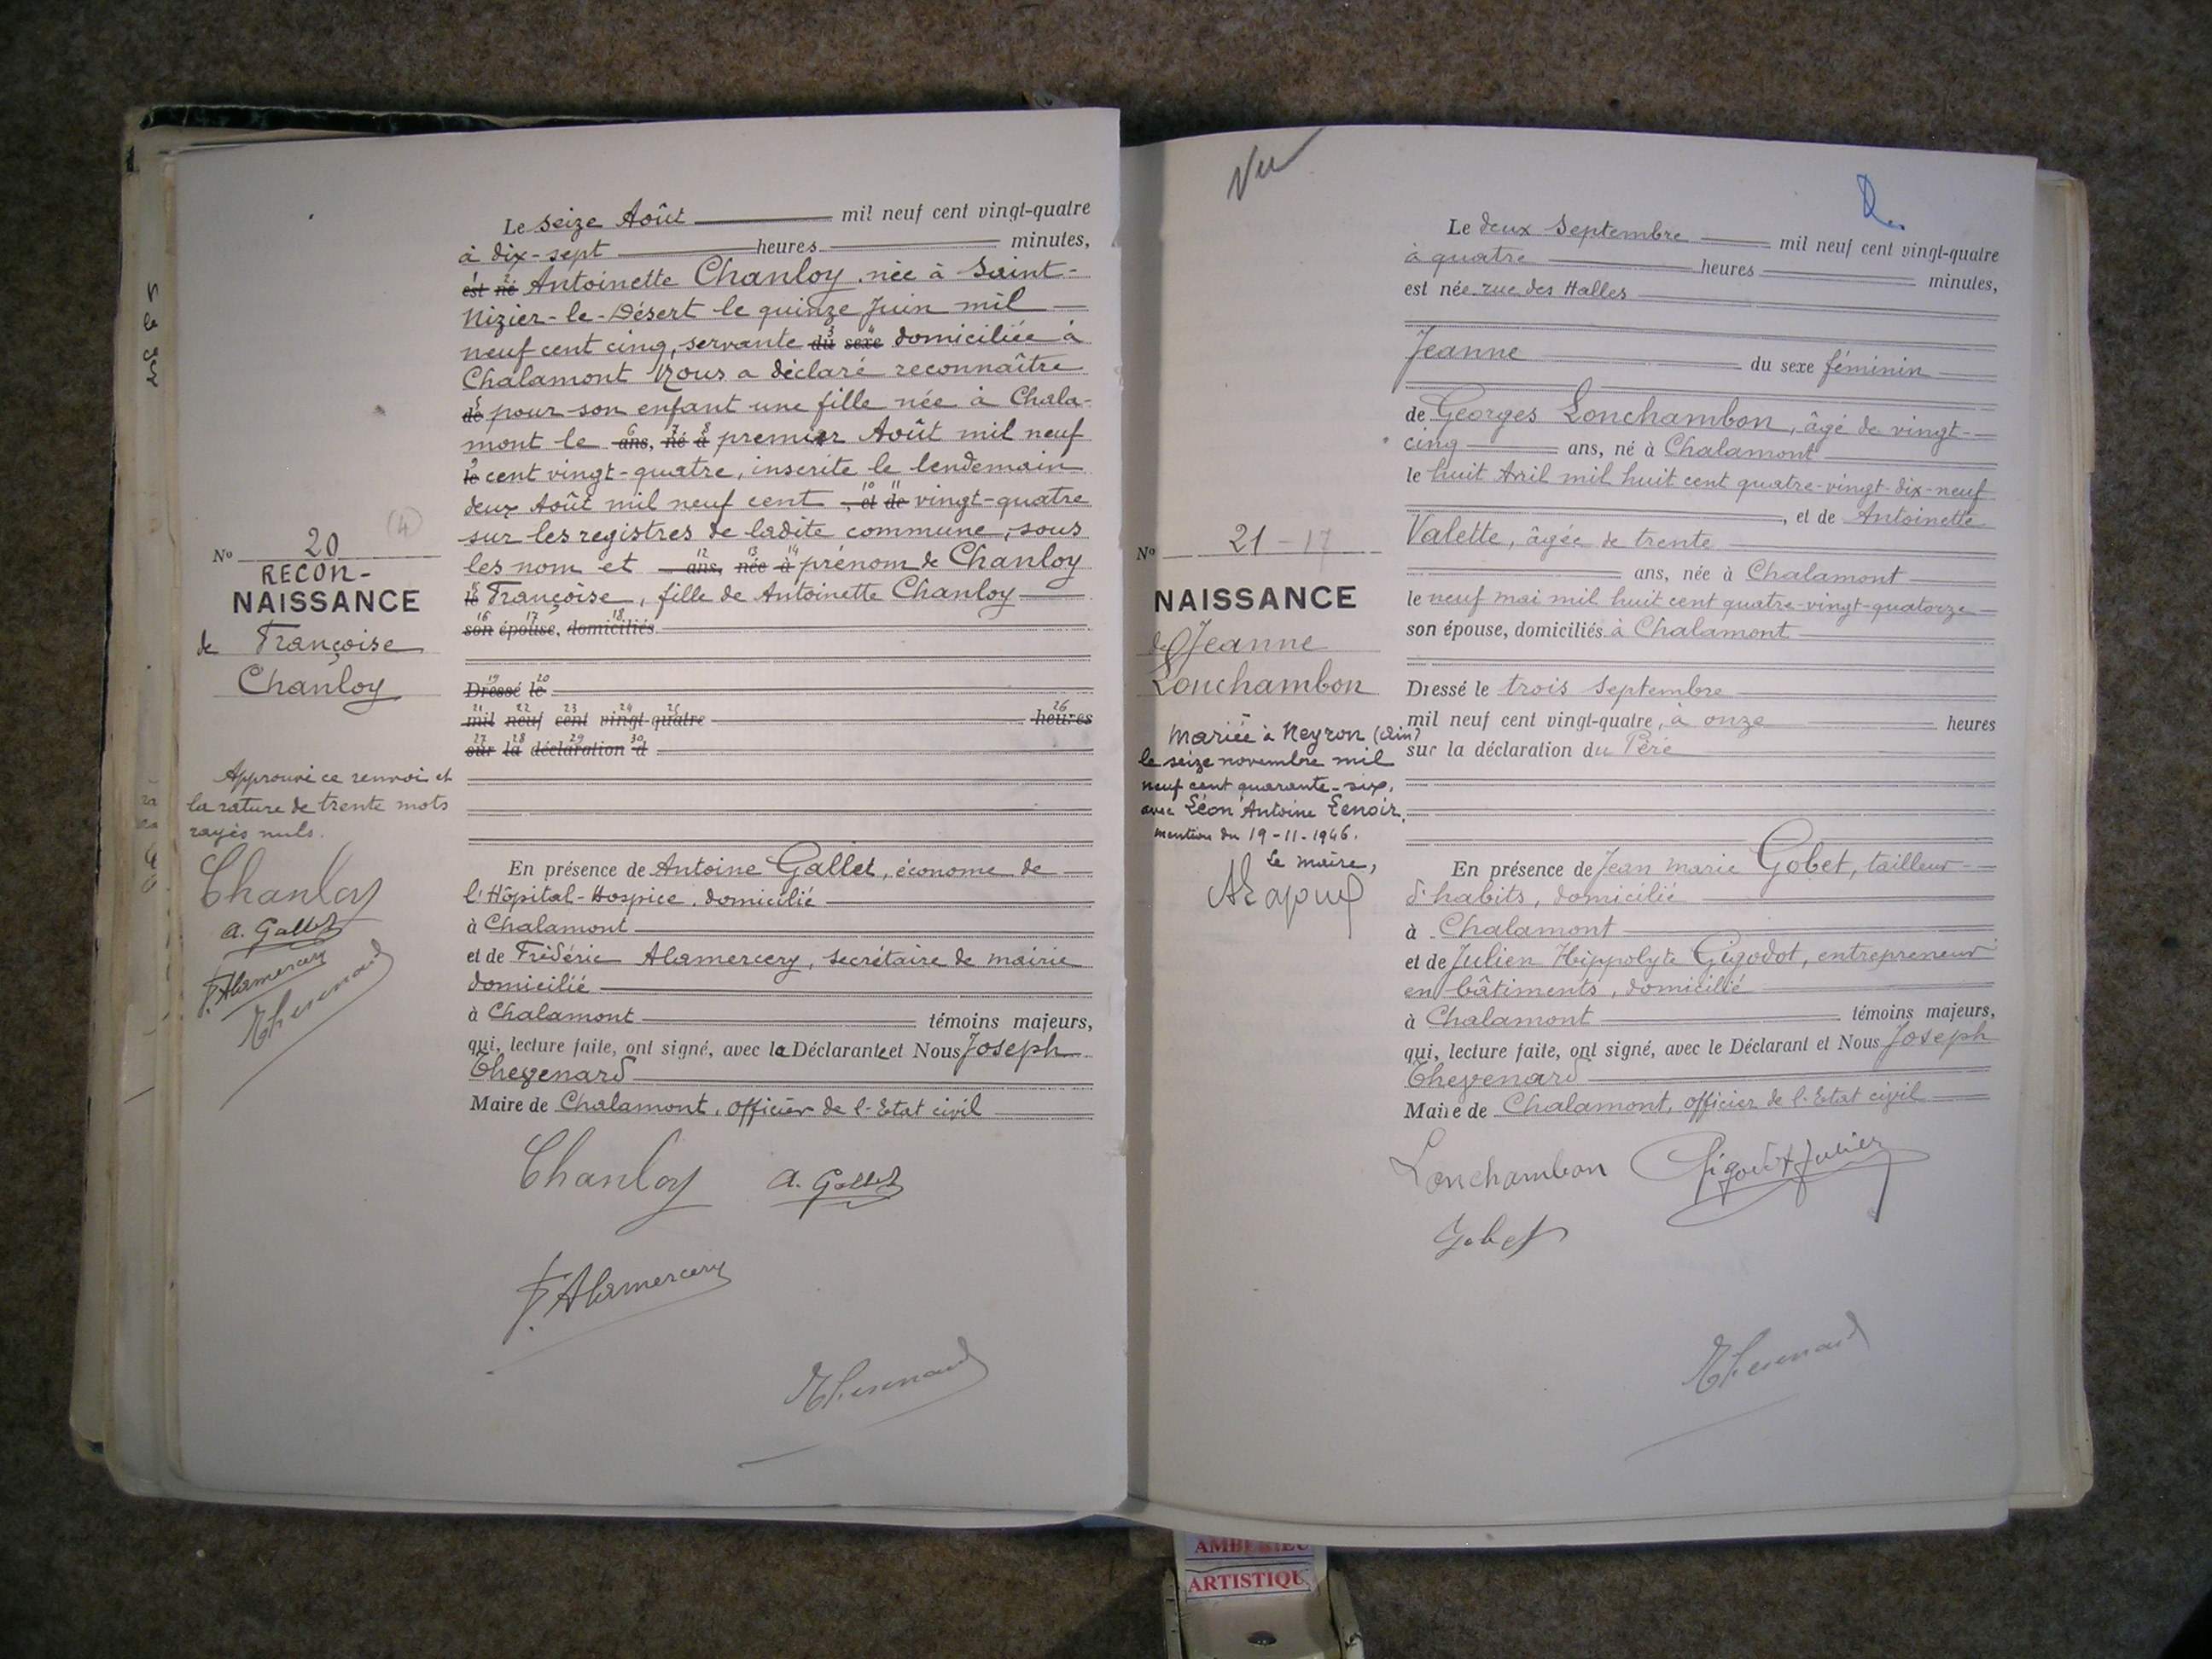 Le seize Août mil neuf cent vingt-quatre
à dix-sept heures minutes,
est né Antoinette Chanloy née à Saint-
Nizier-le-Désert le quinze Juin mil
neuf cent cinq, servante du sexe domiciliée à
Chalamont Nous a déclaré reconnaître
de pour son enfant une fille née à Chala-
mont le ans, né à premier Août mil neuf
le cent vingt-quatre, inscrite le lendemain
deux Août mil neuf cent , et de vingt-quatre
sur les registres de ladite commune, sous
les nom et ans, née à prénom de Chanloy
le Françoise, fille de Antoinette Chanloy
son épouse, domiciliés
Dressé le
mil neuf cent vingt-quatre heures
sur la déclaration d
En présence de Antoine Gallet, économe de
l'Hôpital-Hospice, domicilié
à Chalamont
et de Frédéric Alamercery, secrétaire de mairie
domicilié
à Chalamont témoins majeurs,
qui, lecture faite, ont signé, avec la Déclarante et Nous Joseph
Thevenard
Maire de Chalamont, officier de l'Etat civil
Chanloy A. Gallet
F. Alamercery
Thevenard
No 20 (4)
RECON-
NAISSANCE
de Françoise
Chanloy
Approuvé ce renvoi et
la rature de trente mots
rayés nuls.
Chanloy
A. Gallet
F. Alamercery
Thevenard
Vu
No 21 - 17
NAISSANCE
de Jeanne
Lonchambon
Mariée à Neyron (Ain)
le seize novembre mil
neuf cent quarante-six,
avec Léon Antoine Lenoir.
mention du 19-11-1946.
Le maire,
Le deux Septembre mil neuf cent vingt-quatre
à quatre heures minutes,
est née rue des Halles
Jeanne du sexe féminin
de Georges Lonchambon, âgé de vingt-
cinq ans, né à Chalamont
le huit Avril mil huit cent quatre-vingt-dix-neuf
, et de Antoinette
Valette, âgée de trente
ans, née à Chalamont
le neuf mai mil huit cent quatre-vingt-quatorze
son épouse, domiciliés à Chalamont
Dressé le trois Septembre
mil neuf cent vingt-quatre, à onze heures
sur la déclaration du Père
En présence de Jean Marie Gobet, tailleur
d'habits, domicilié
à Chalamont
et de Julien Hippolyte Gigodot, entrepreneur
en bâtiments, domicilié
à Chalamont témoins majeurs,
qui, lecture faite, ont signé, avec le Déclarant et Nous Joseph
Thevenard
Maire de Chalamont, officier de l'Etat civil
Lonchambon Gigodot Julien
Gobet
Thevenard
AMBERIEU
ARTISTIQU